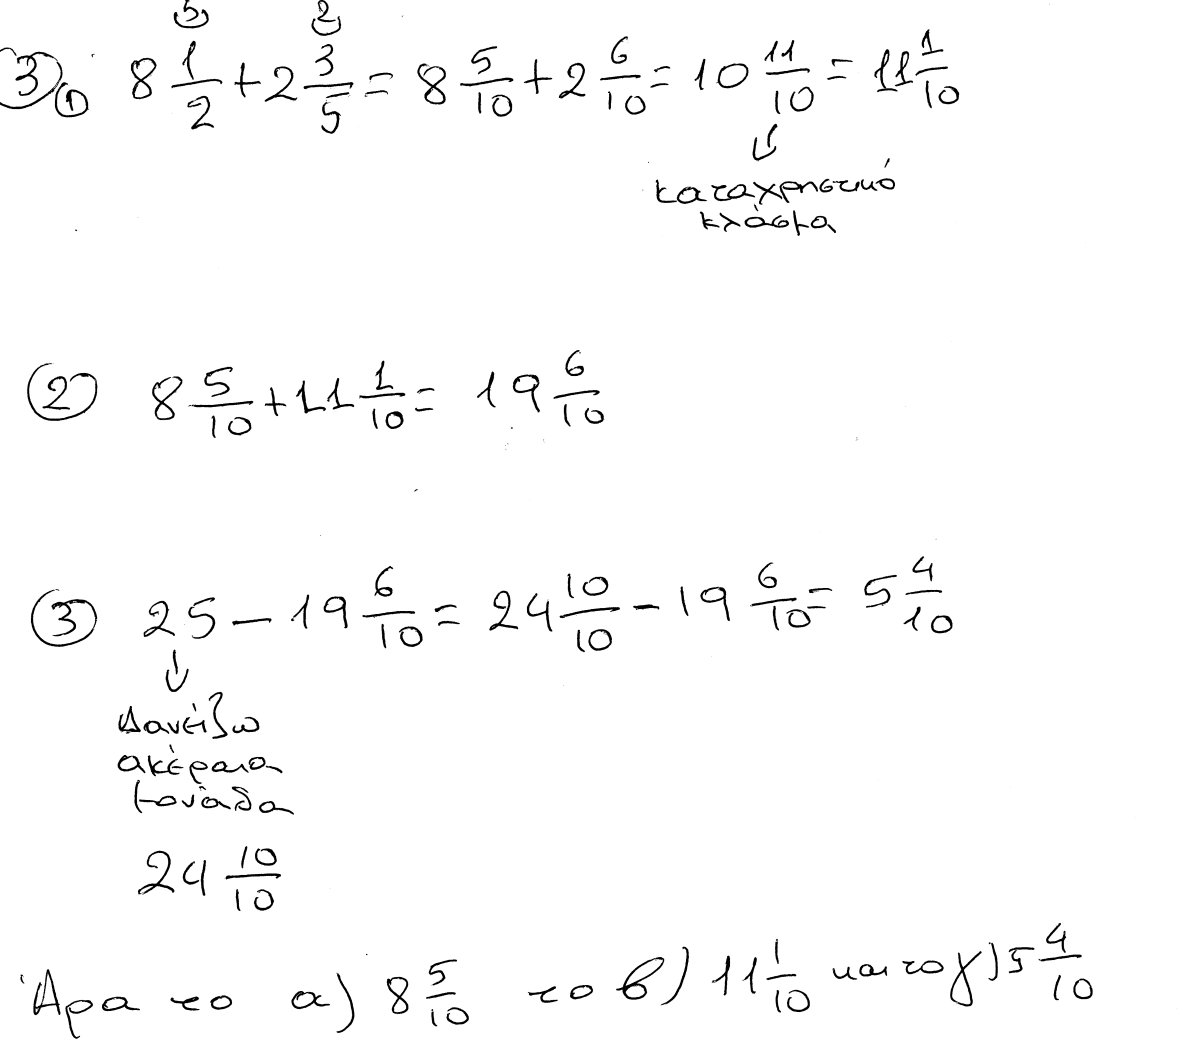 5 2
3) 1) 8 1/2 + 2 3/5 = 8 5/10 + 2 6/10 = 10 11/10 = 11 1/10
καταχρηστικό
κλάσμα
2) 8 5/10 + 11 1/10 = 19 6/10
3) 25 - 19 6/10 = 24 10/10 - 19 6/10 = 5 4/10
Δανείζω
ακέραια
μονάδα
24 10/10
Άρα το α) 8 5/10 το β) 11 1/10 και το γ) 5 4/10